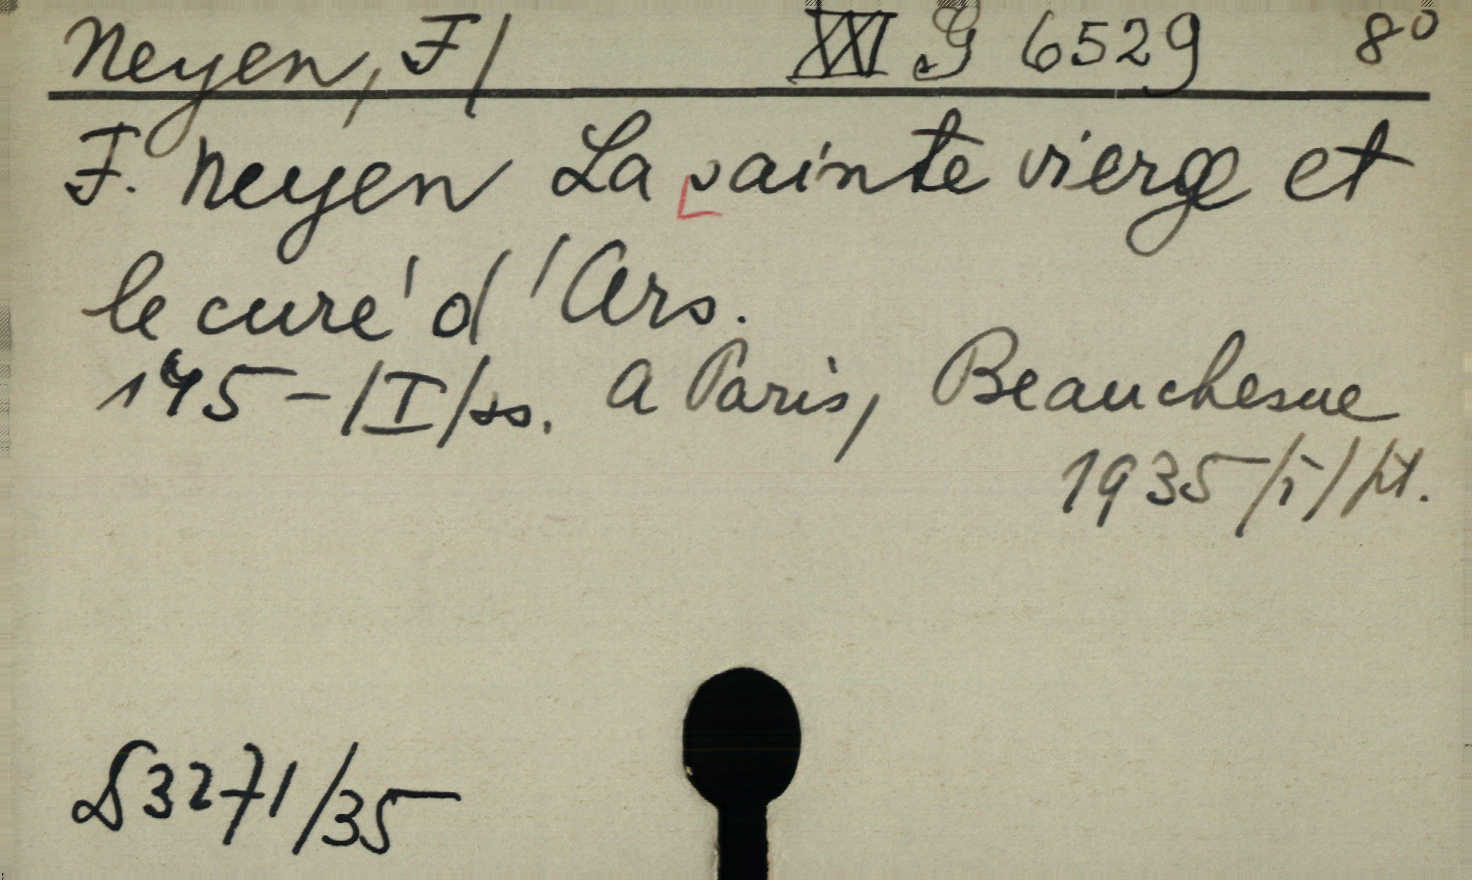 Neyen, F/ XXI G 6529 8°
F. Neyen La sainte vierge et
le curé d'Ars.
175-/I/ss. A Paris, Beauchesne
1935/i//pt.
S3271/35